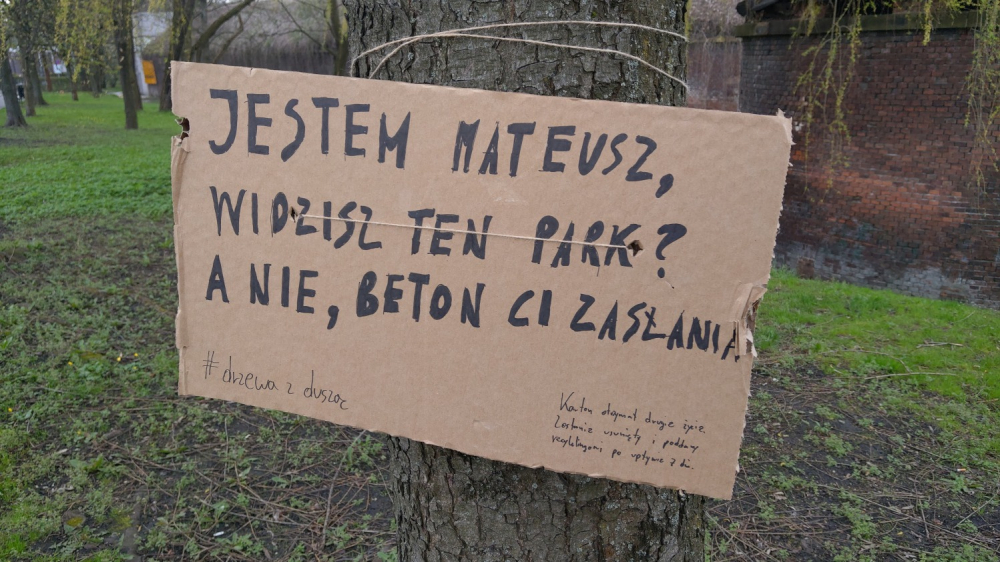 JESTEM MATEUSZ,
WIDZISZ TEN PARK?
A NIE, BETON CI ZASŁANIA
# drzewa z duszą
Karton otrzymał drugie życie.
Zostanie usunięty i poddany
recyklingowi po upływie 7 dni.